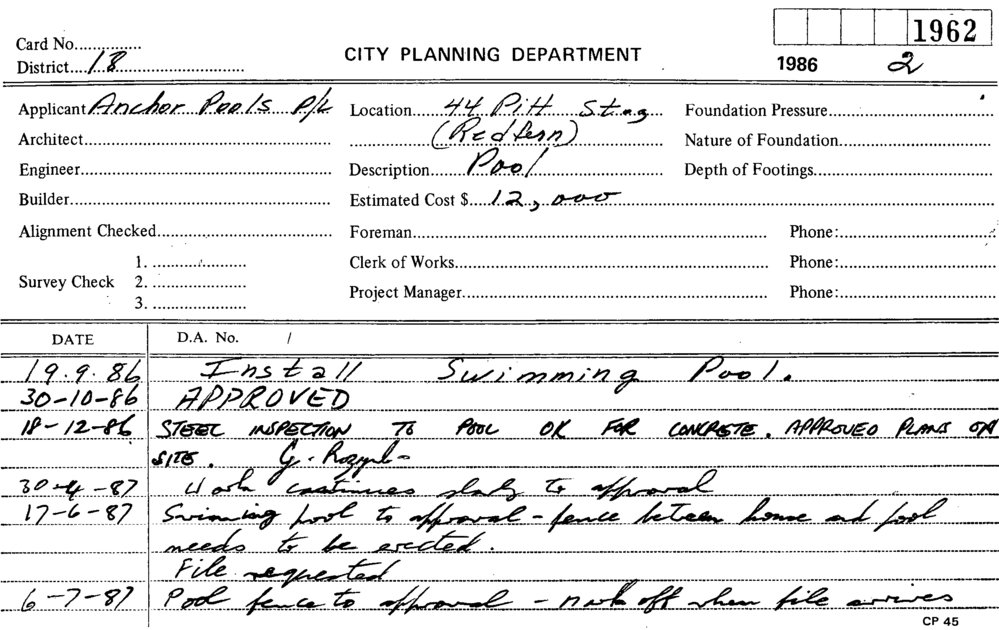 Card No.
1962
District 18
CITY PLANNING DEPARTMENT
1986 2
Applicant Anchor Pools P/L Location 44 Pitt St Foundation Pressure
Architect (Redfern) Nature of Foundation
Engineer Description Pool Depth of Footings
Builder Estimated Cost $ 12,000
Alignment Checked Foreman Phone:
1. Clerk of Works Phone:
Survey Check 2.
Project Manager Phone:
3.
DATE D.A. No. /
19.9.86 Install Swimming Pool.
30-10-86 APPROVED
18-12-86 STEEL INSPECTION TO POOL OK FOR CONCRETE. APPROVED PLANS ON
SITE. G.
30-4-87 Work continues to approval
17-6-87 Swimming pool to approval - fence between house and pool
needs to be erected.
File requested
6-7-87 Pool fence to approval - mark off when file arrives
CP 45